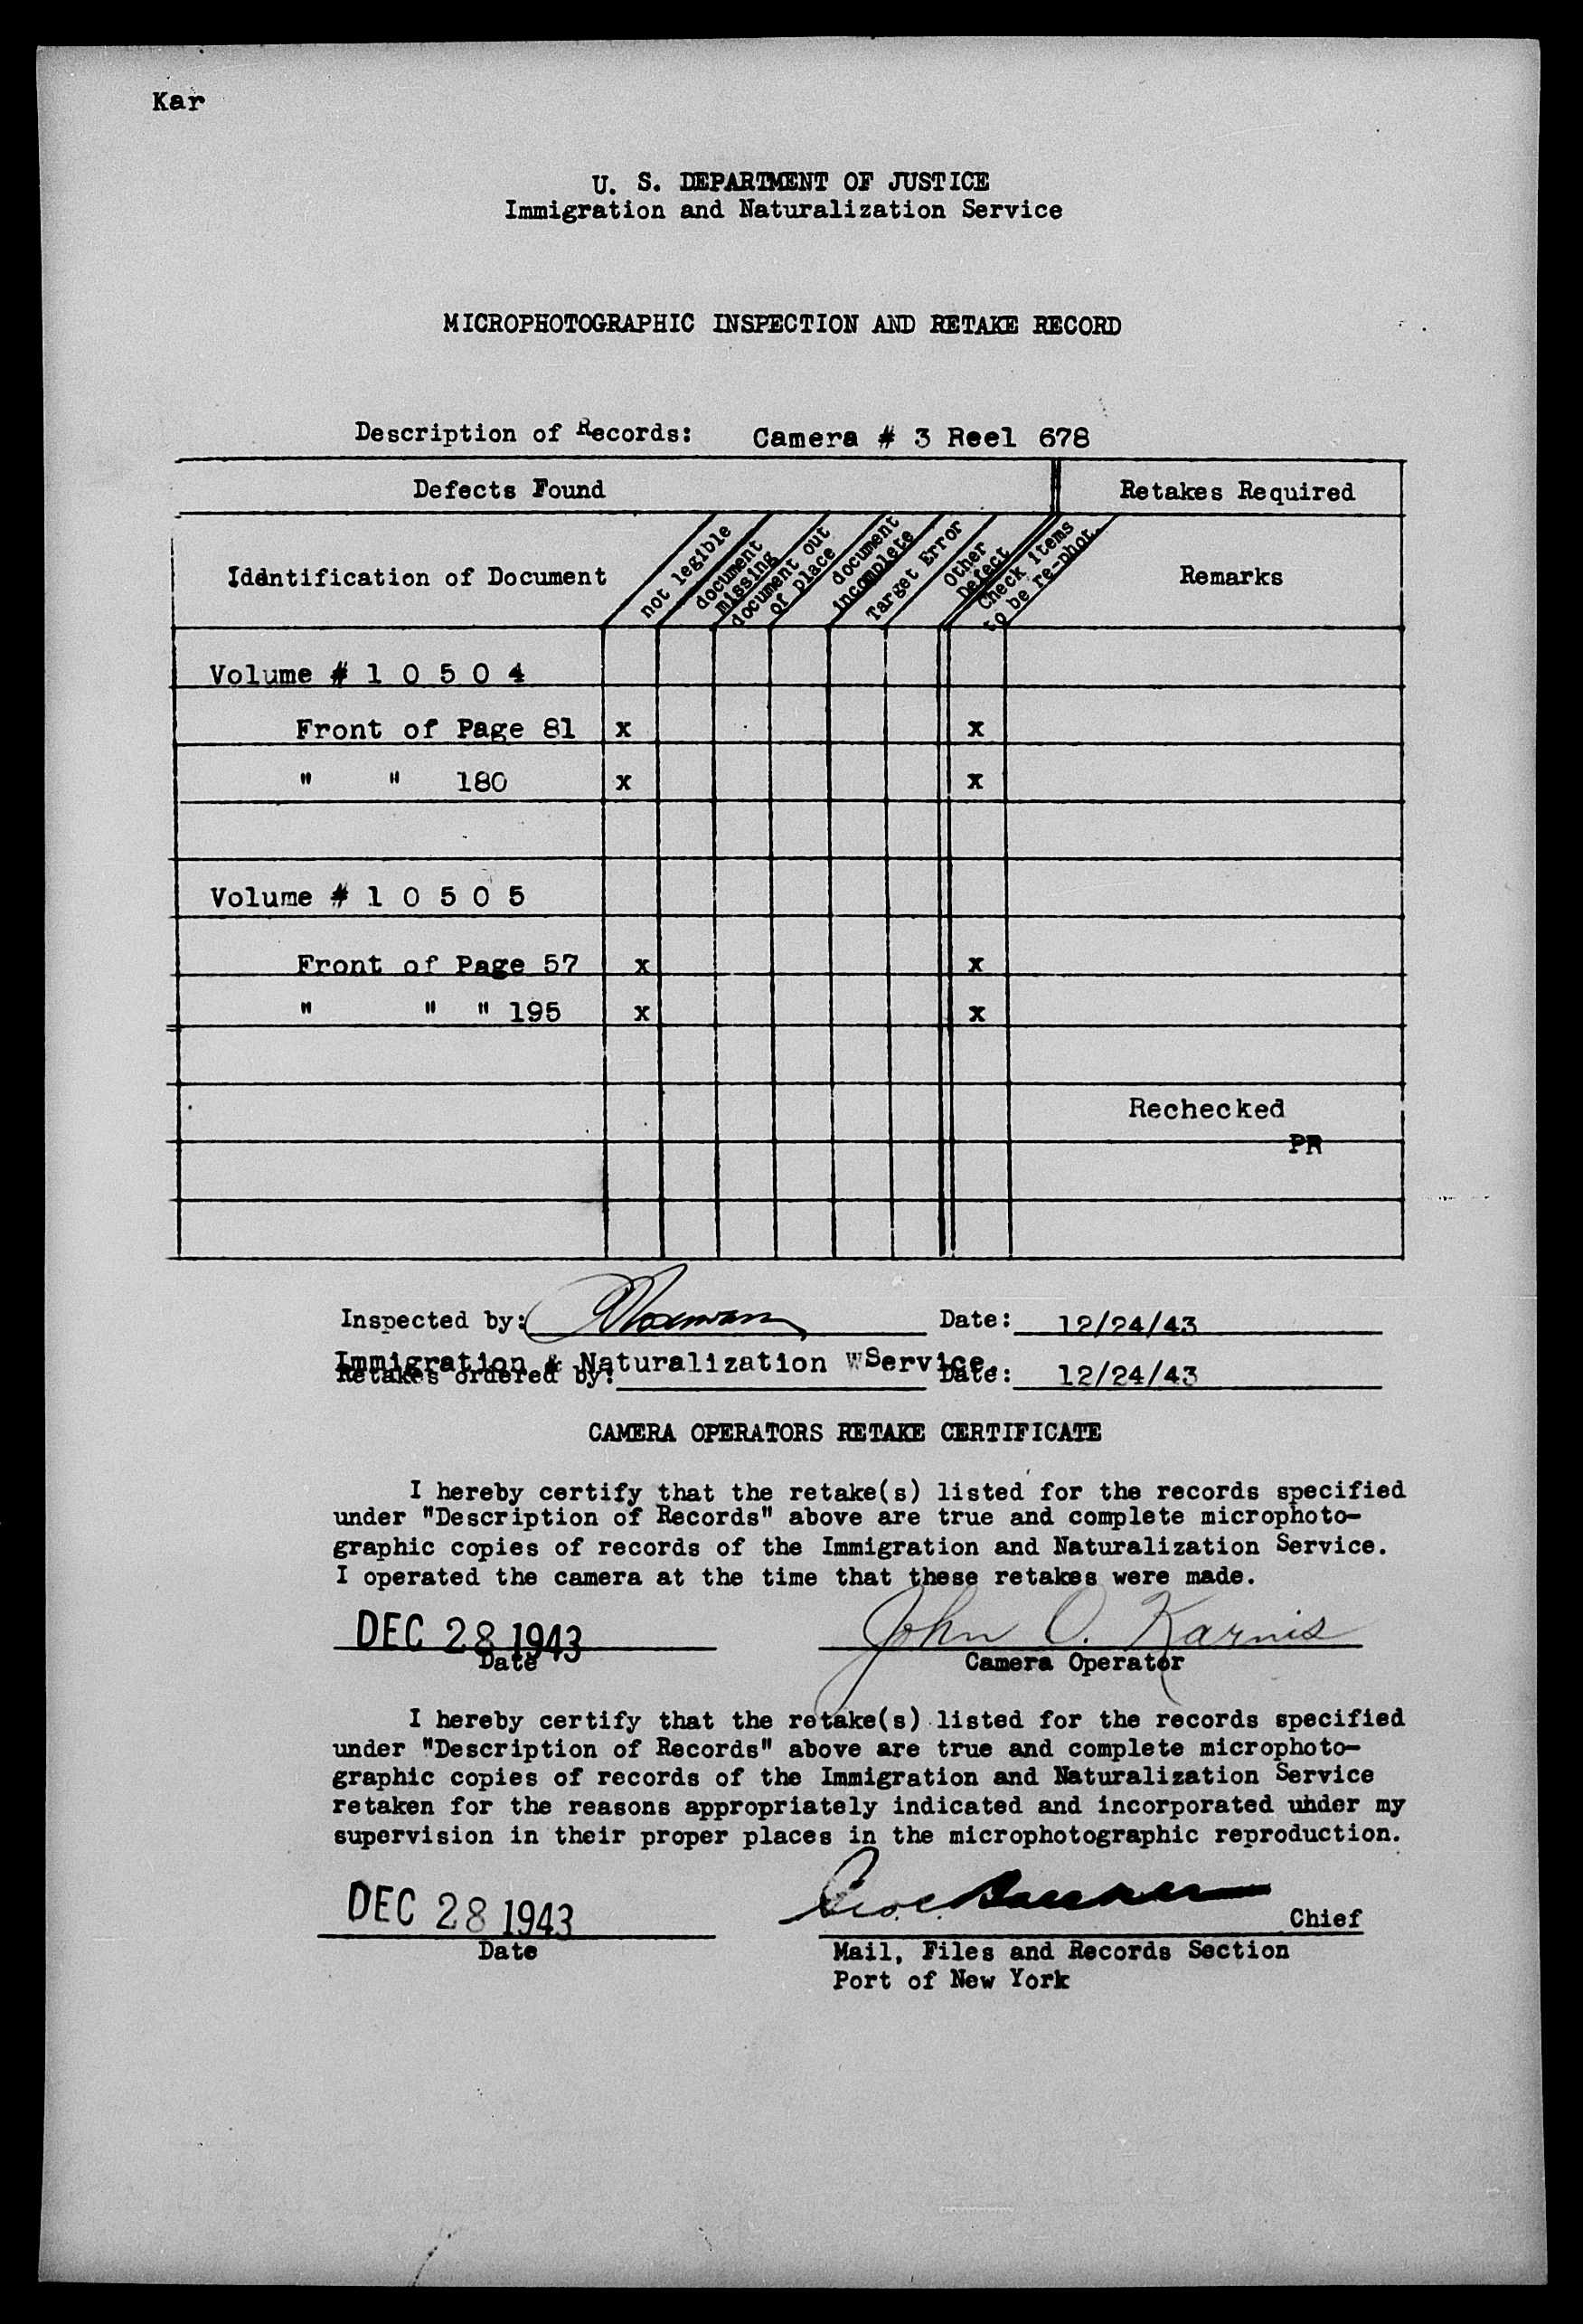 Kar
U. S. DEPARTMENT OF JUSTICE
Immigration and Naturalization Service
MICROPHOTOGRAPHIC INSPECTION AND RETAKE RECORD
Description of Records: Camera # 3 Reel 678
Defects Found Retakes Required
Identification of Document not legible document missing document out of place document incomplete Target Error Other Defect Check items to be re-phot. Remarks
Volume # 1 0 5 0 4
Front of Page 81 x x
" " 180 x x
Volume # 1 0 5 0 5
Front of Page 57 x x
" " " 195 x x
Rechecked
PR
Inspected by: Date: 12/24/43
Immigration & Naturalization Service.
Retakes ordered by: Date: 12/24/43
CAMERA OPERATORS RETAKE CERTIFICATE
I hereby certify that the retake(s) listed for the records specified
under "Description of Records" above are true and complete microphoto-
graphic copies of records of the Immigration and Naturalization Service.
I operated the camera at the time that these retakes were made.
DEC 28 1943 John O. Karnis
Date Camera Operator
I hereby certify that the retake(s) listed for the records specified
under "Description of Records" above are true and complete microphoto-
graphic copies of records of the Immigration and Naturalization Service
retaken for the reasons appropriately indicated and incorporated under my
supervision in their proper places in the microphotographic reproduction.
DEC 28 1943 Chief
Date Mail, Files and Records Section
Port of New York